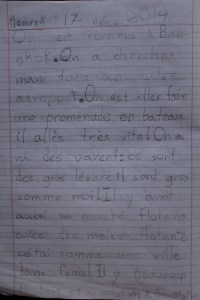 On est revenu à Ban-
gkok. On a chercher
mani dans un
aeroport. On est aller fair
une promenade en bateau
il allès très vite! On a
vu des varent: ce sont
des gros lézare. Il sont gros
comme moi! Il y avait
aussi un marché flotans
avec des maison flotante
cétai comme une ville
dans l'eau! Il y beaucoup